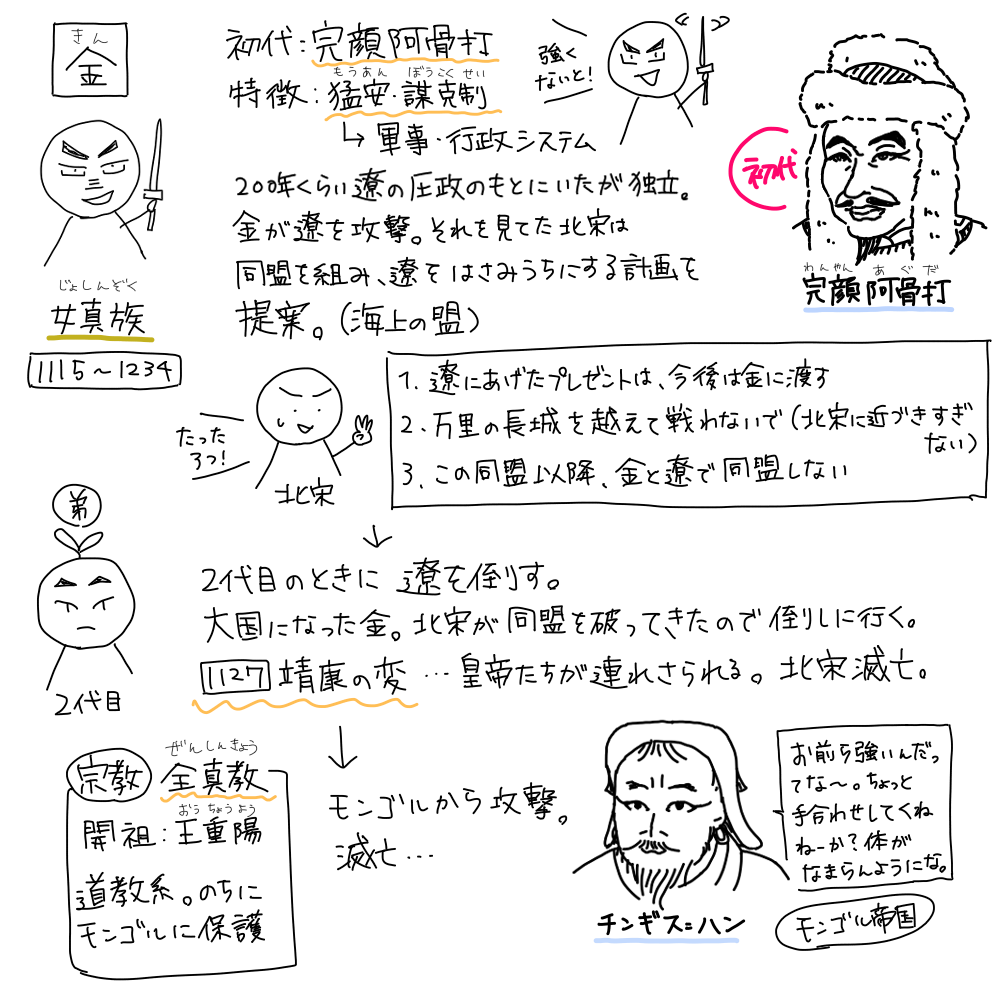 きん
金
初代:完顔阿骨打
もうあん ぼうこくせい
特徴:猛安・謀克制
↳軍事・行政システム
強く
ないと!
初代
わんやん あぐだ
完顔阿骨打
じょしんぞく
女真族
1115~1234
200年くらい遼の圧政のもとにいたが独立。
金が遼を攻撃。それを見てた北宋は
同盟を組み、遼をはさみうちにする計画を
提案。(海上の盟)
たった
3つ!
北宋
1. 遼にあげたプレゼントは、今後は金に渡す
2. 万里の長城を越えて戦わないで(北宋に近づきすぎ
ない)
3. この同盟以降、金と遼で同盟しない
↓
弟
2代目
2代目のときに遼を倒す。
大国になった金。北宋が同盟を破ってきたので倒しに行く。
1127 靖康の変…皇帝たちが連れさられる。北宋滅亡。
↓
宗教
ぜんしんきょう
全真教
おうちょうよう
開祖:王重陽
道教系。のちに
モンゴルに保護
モンゴルから攻撃。
滅亡…
チンギス=ハン
お前ら強いんだっ
てな~。ちょっと
手合わせしてくれ
ねーか?体が
なまらんようにな。
モンゴル帝国